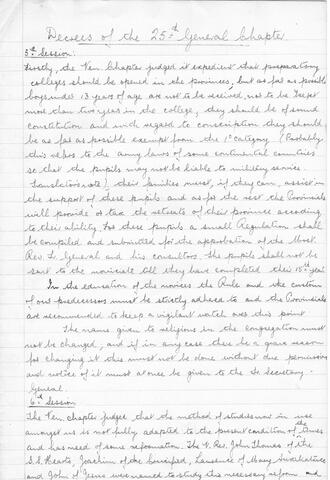 Decrees of the 25th General Chapter
5th Session:
Firstly, the Ven. Chapter judged it expedient that preparatory
colleges should be opened in the provinces, but as far as possible
boys under 13 years of age are not to be received, not to be kept
more than two years in the college, they should be of sound
constitution and with regard to conscription they should
be as far as possible exempt from the 1st category (Probably
this refers to the army laws of some continental countries
so that the pupils may not be liable to military service.
Translator's note), their families must, if they can, assist in
the support of these pupils and as for the rest the Provincials
will provide or tax the retreats of their province according
to their ability. For these pupils a small Regulation shall
be compiled and submitted for the approbation of the Most
Rev. Fr. General and his consultors. The pupils shall not be
sent to the novitiate till they have completed their 15th year
In the education of the novices the Rule and the customs
of our predecessors must be strictly adhered to and the Provincials
are recommended to keep a vigilant watch over this point
The name given to religious in the Congregation must
not be changed, and if in any case there be a grave reason
for changing it this must not be done without due permission
and notice of it must at once be given to the Secretary-
General.
6th Session
The Ven. chapter judged that the method of studies now in use
amongst us is not fully adapted to the present condition of the times
and has need of some reformation. The V. Rev. John Thomas of the
S.S. Hearts, Joachim of the Crucified, Laurence of Mary Immaculate
and John of Jesus was named to study this necessary reform and